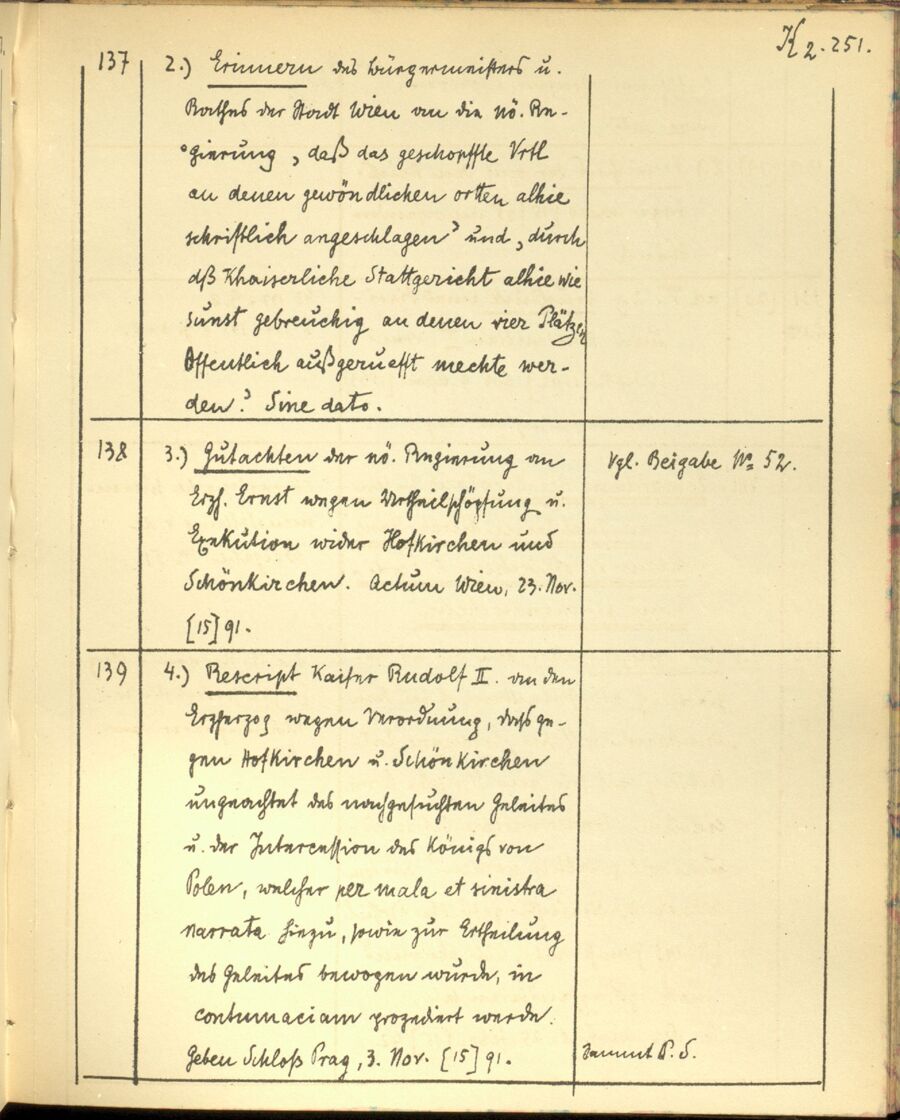 K 2. 251.
137 2.) Erinnern des Bürgermeisters u.
Rathes der Stadt Wien an die nö. Re-
gierung, „daß das geschopffte Vrtl
an denen gewöndlichen ortten alhie
schriftlich angeschlagen" und „durch
dß Khaiserliche Stattgericht alhie wie
sunst gebreuchig an denen vier Plätzen
Offentlich außgeruefft mechte wer-
den." Sine dato.
138 3.) Gutachten der nö. Regierung an Vgl. Beigabe No 52.
Erzh. Ernst wegen Vrtheilschöpfung u.
Exekution wider Hofkirchen und
Schönkirchen. Actum Wien, 23. Nov.
[15]91.
139 4.) Rescript Kaiser Rudolf II. an den
Erzherzog wegen Verordnung, dass ge-
gen Hofkirchen u. Schönkirchen
ungeachtet des nachgesuchten Geleites
u. der Intercession des Königs von
Polen, welcher per mala et sinistra
narrata hiezu, sowie zur Ertheilung
des Geleites bewogen wurde, in
contumaciam prozediert werde.
Geben Schloß Prag, 3. Nov. [15]91. sammt P. S.